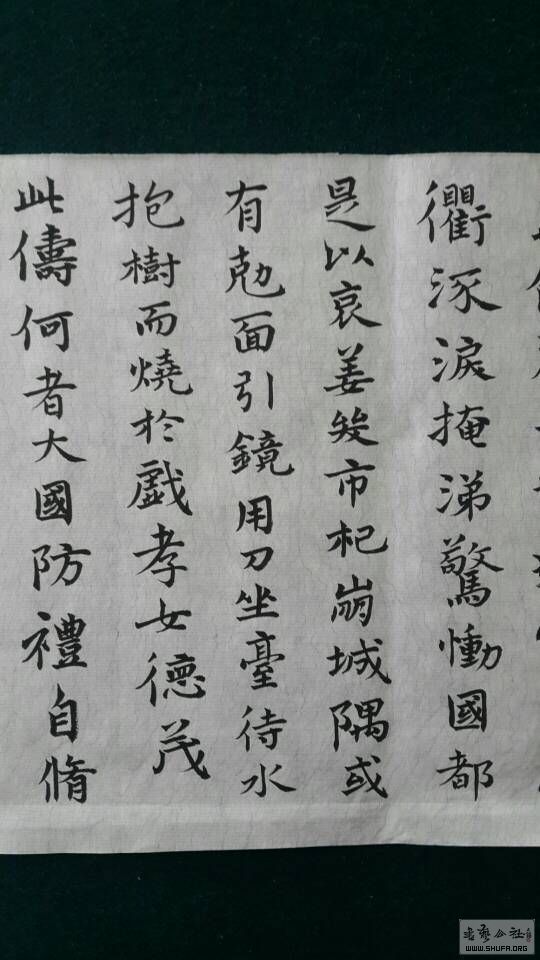 衢涿淚掩涕驚慟國都
是以哀姜哭市杞崩城隅或
有尅面引鏡用刀坐臺待水
抱樹而燒於戲孝女德茂
此儔何者大國防禮自脩
书艺公社
WWW.SHUFA.ORG